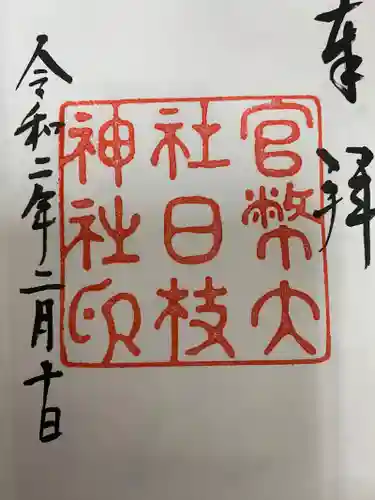 奉拝
官幣大
社日枝
神社印
令和二年二月十日